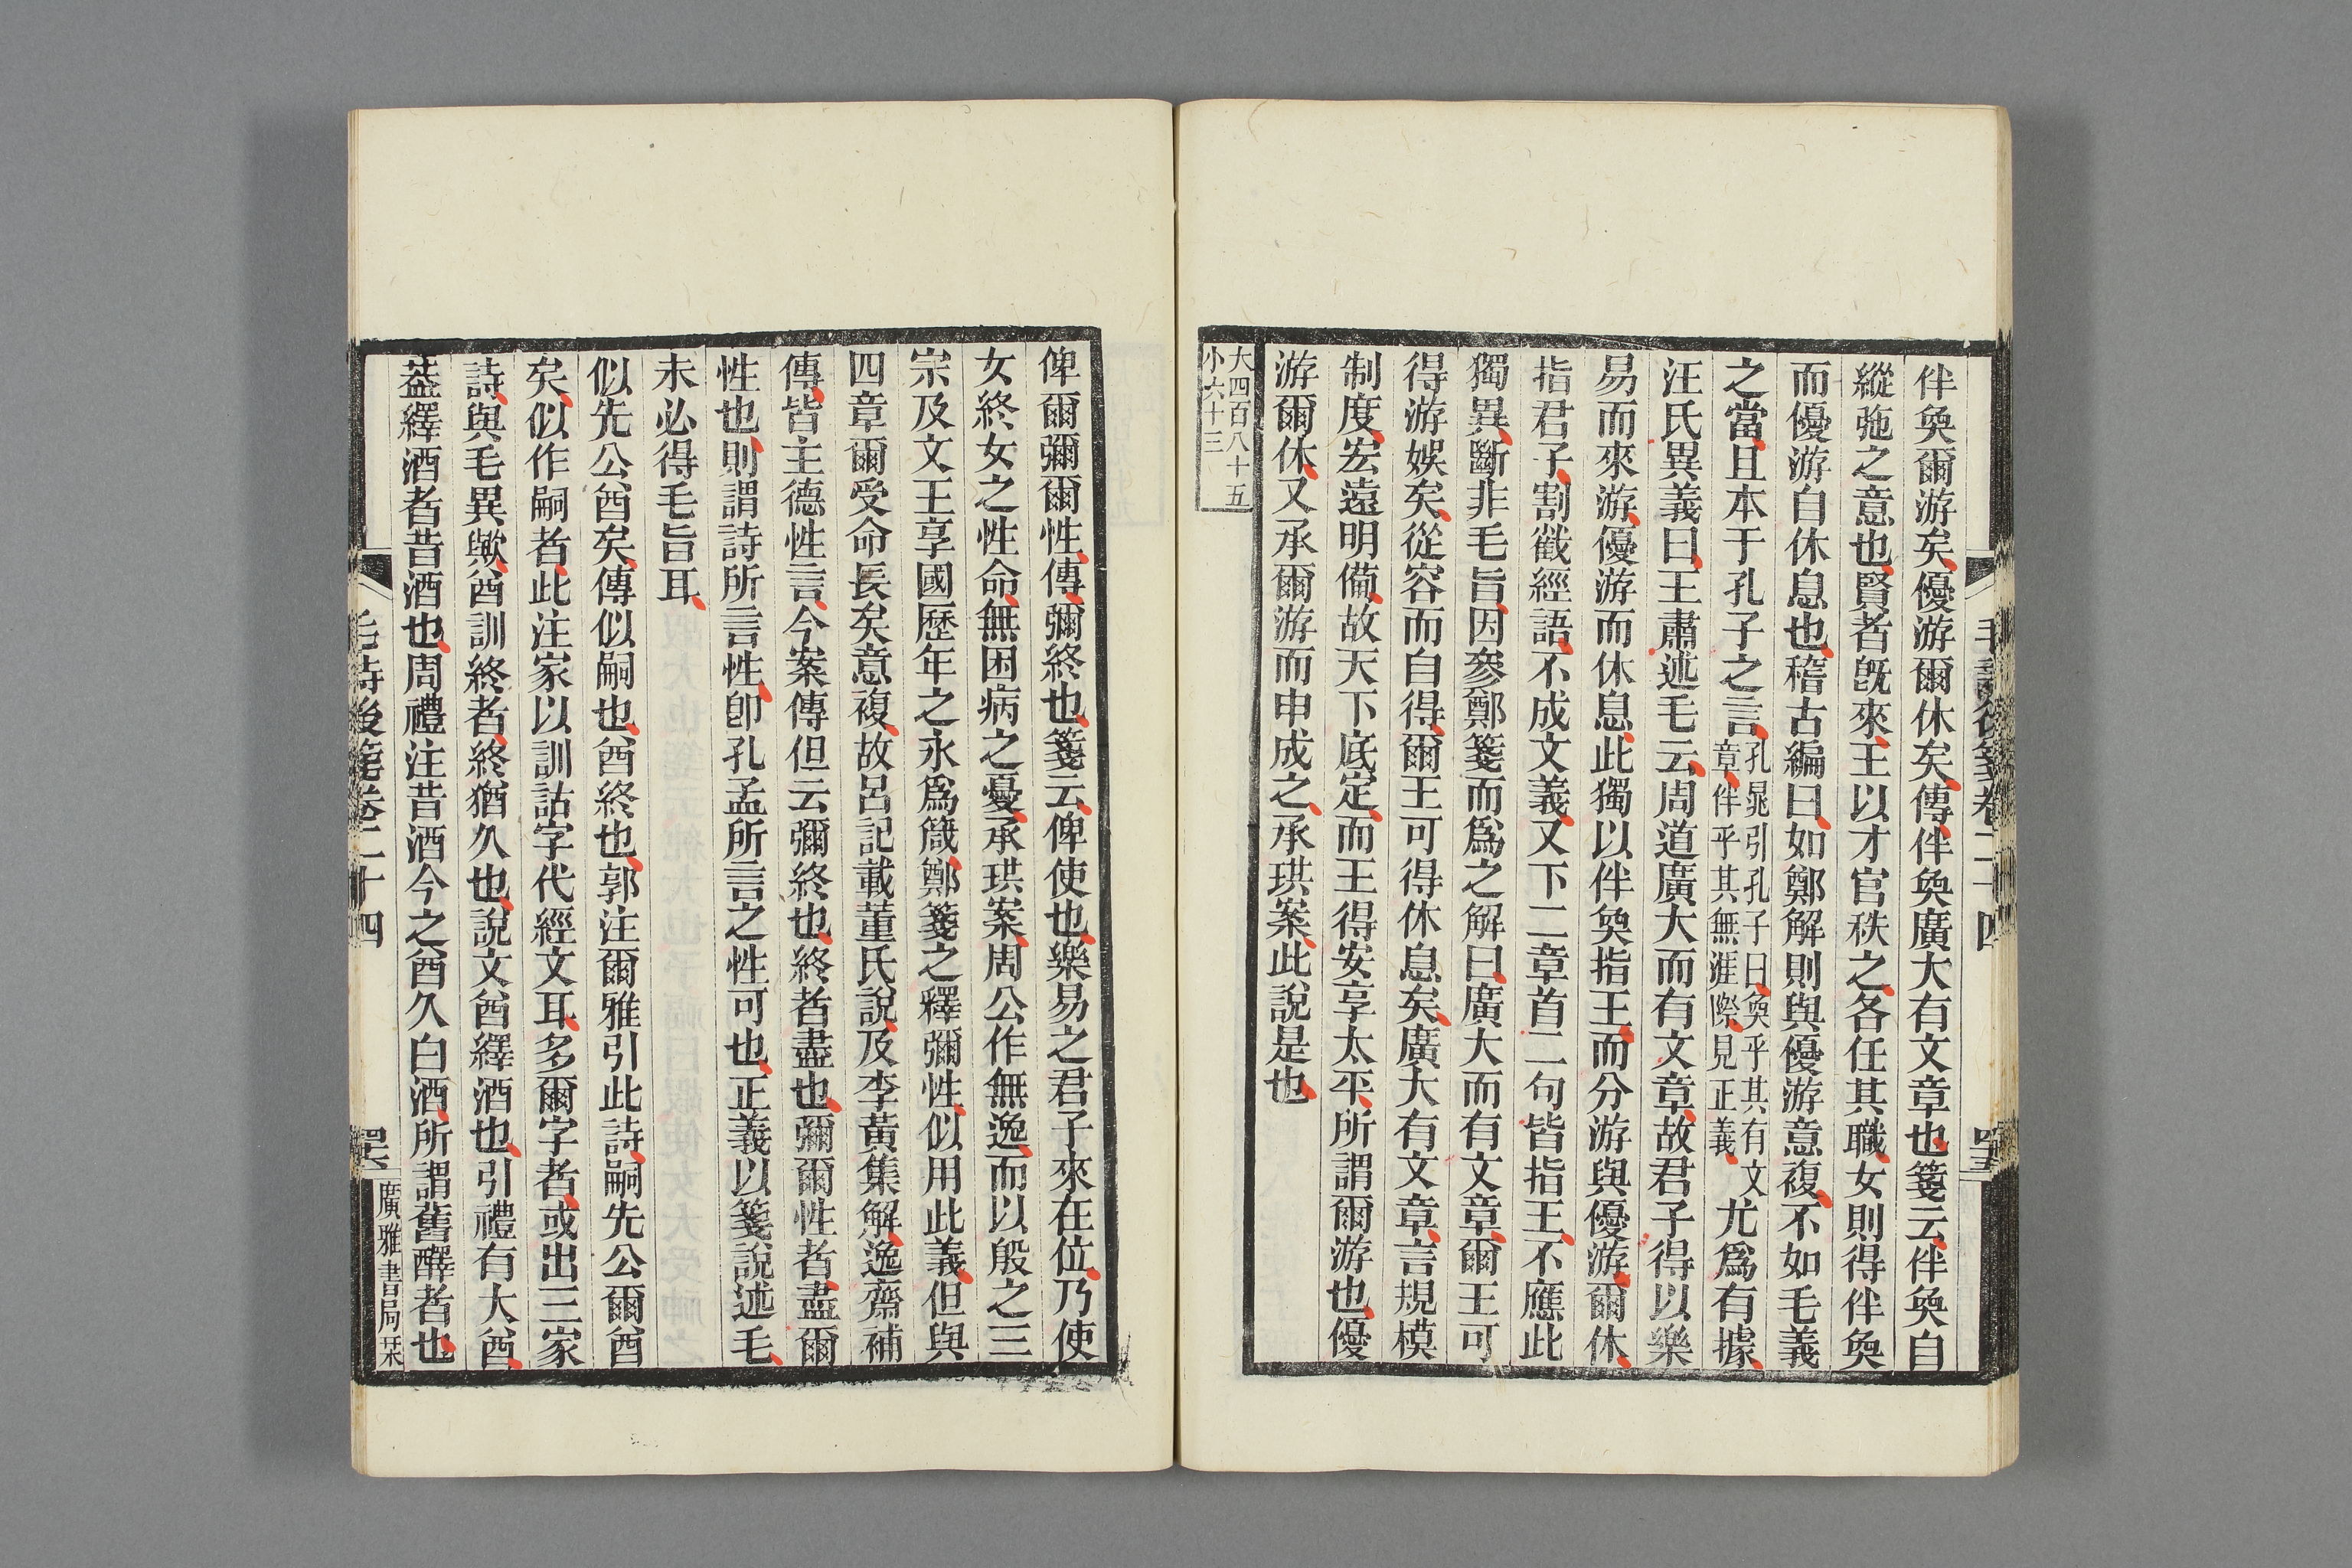 伴奐爾游矣優游爾休矣傳伴奐廣大有文章也箋云伴奐自
縱弛之意也賢者旣來王以才官秩之各任其職女則得伴奐
而優游自休息也稽古編曰如鄭解則與優游意複不如毛義
之當且本于孔子之言孔晁引孔子曰奐乎其有文章伴乎其無涯際見正義尤爲有據
汪氏異義曰王肅述毛云周道廣大而有文章故君子得以樂
易而來游優游而休息此獨以伴奐指王而分游與優游爾休
指君子割截經語不成文義又下二章首二句皆指王不應此
獨異斷非毛旨因參鄭箋而爲之解曰廣大而有文章爾王可
得游娛矣從容而自得爾王可得休息矣廣大有文章言規模
制度宏遠明備故天下底定而王得安享太平所謂爾游也優
游爾休又承爾游而申成之承珙案此說是也
大四百八十五
小六十三
俾爾彌爾性傳彌終也箋云俾使也樂易之君子來在位乃使
女終女之性命無困病之憂承珙案周公作無逸而以殷之三
宗及文王享國歷年之永爲箴鄭箋之釋彌性似用此義但與
四章爾受命長矣意複故呂記載董氏說及李黃集解逸齋補
傳皆主德性言今案傳但云彌終也終者盡也彌爾性者盡爾
性也則謂詩所言性卽孔孟所言之性可也正義以箋說述毛
未必得毛旨耳
似先公酋矣傳似嗣也酋終也郭注爾雅引此詩嗣先公爾酋
矣似作嗣者此注家以訓詁字代經文耳多爾字者或出三家
詩與毛異歟酋訓終者終猶久也說文酋繹酒也引禮有大酋
葢繹酒者昔酒也周禮注昔酒今之酋久白酒所謂舊醳者也
毛詩後箋卷二十四
廣雅書局栞